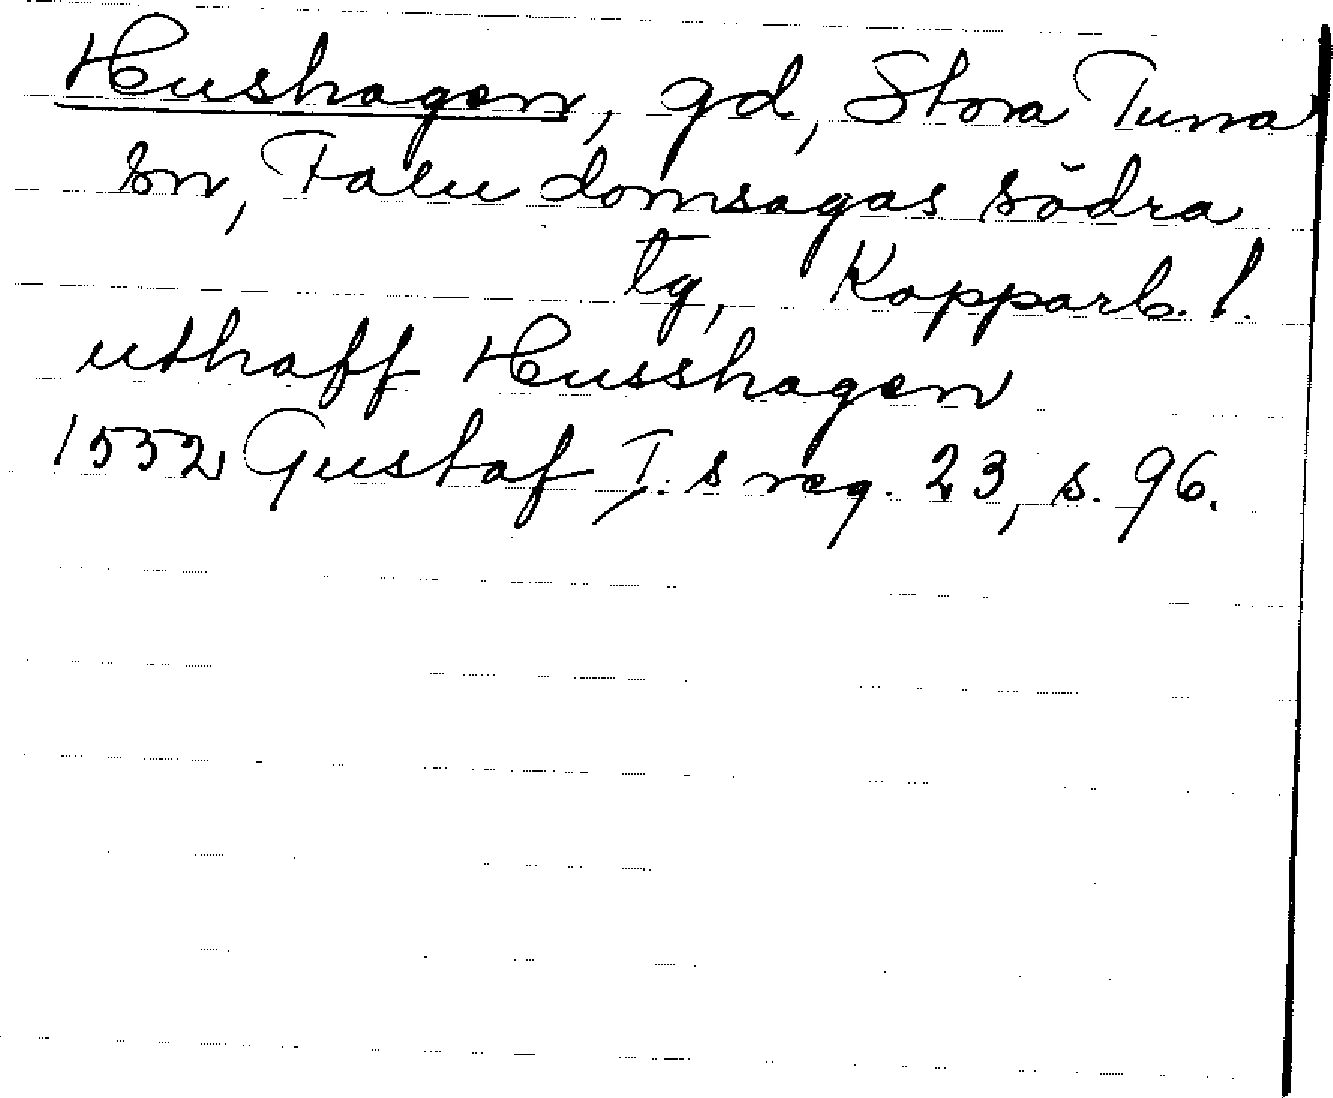 Hushagen, gd, Stora Tuna
sn, Falu domsagas södra
tg, Kopparb. l.
uthaff Husshagen
1552 Gustaf I:s reg. 23, s. 96.